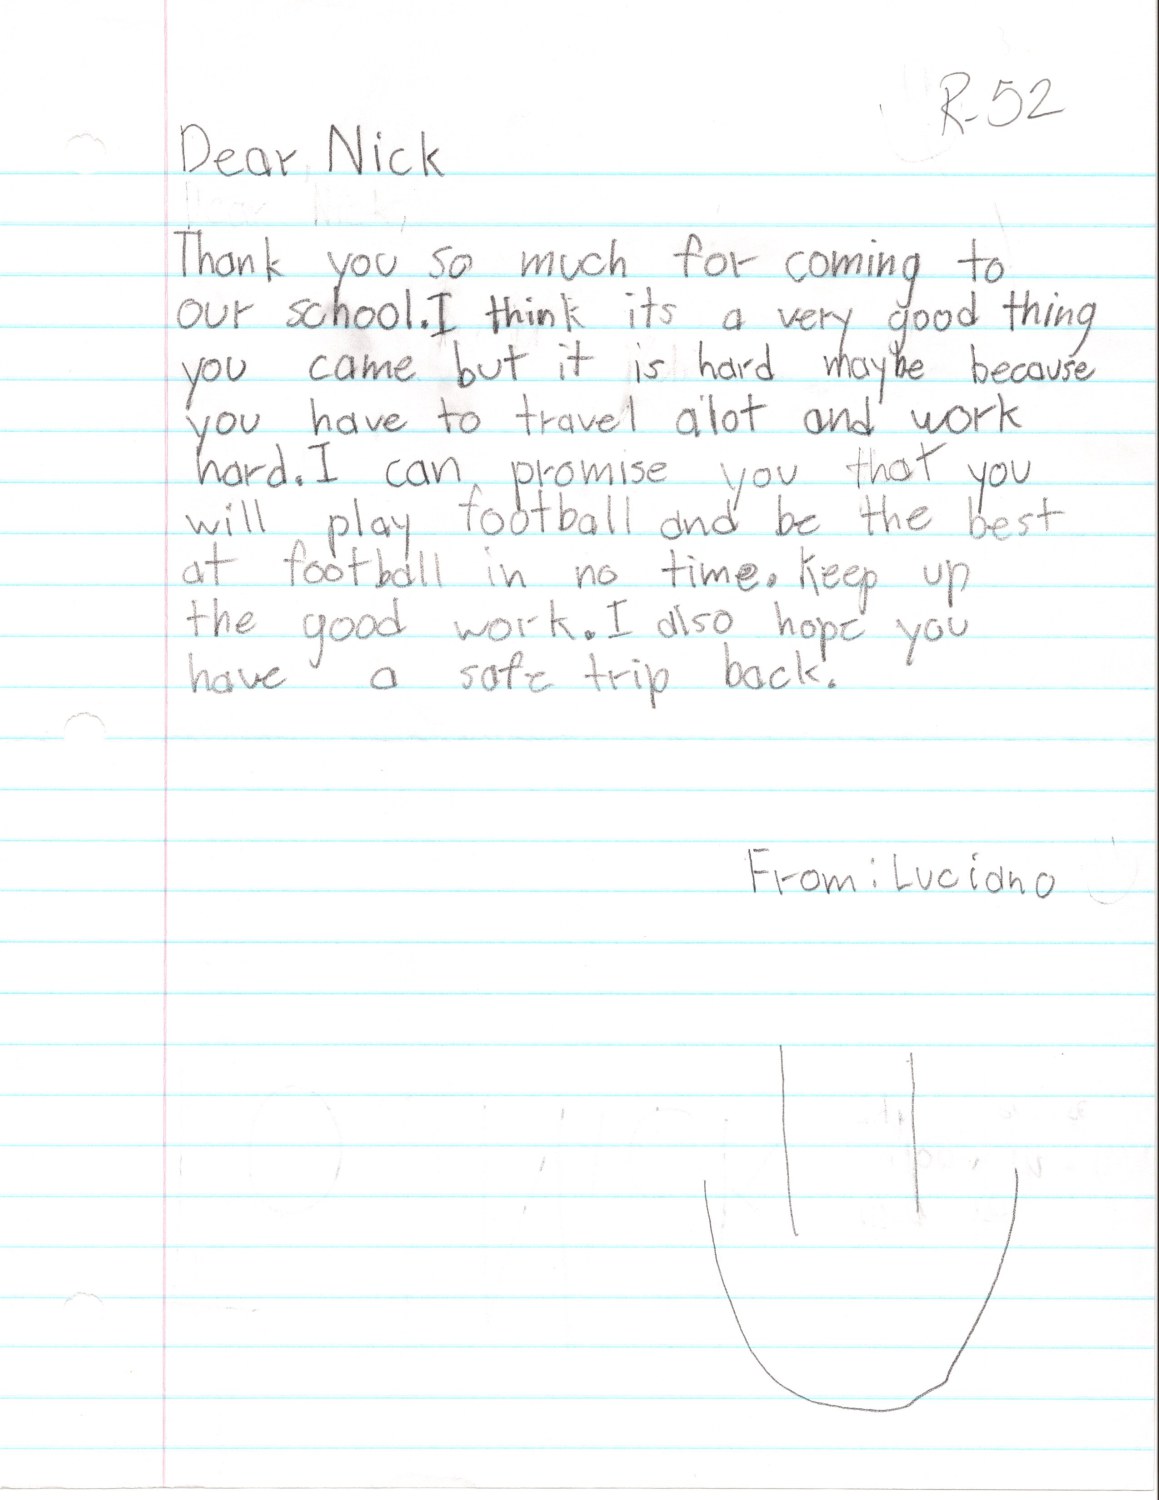 R-52
Dear Nick
Thank you so much for coming to
our school.I think its a very good thing
you came but it is hard maybe because
you have to travel a'lot and work
hard.I can promise you that you
will play football and be the best
at football in no time. Keep up
the good work.I also hope you
have a safe trip back.
From: Luciano